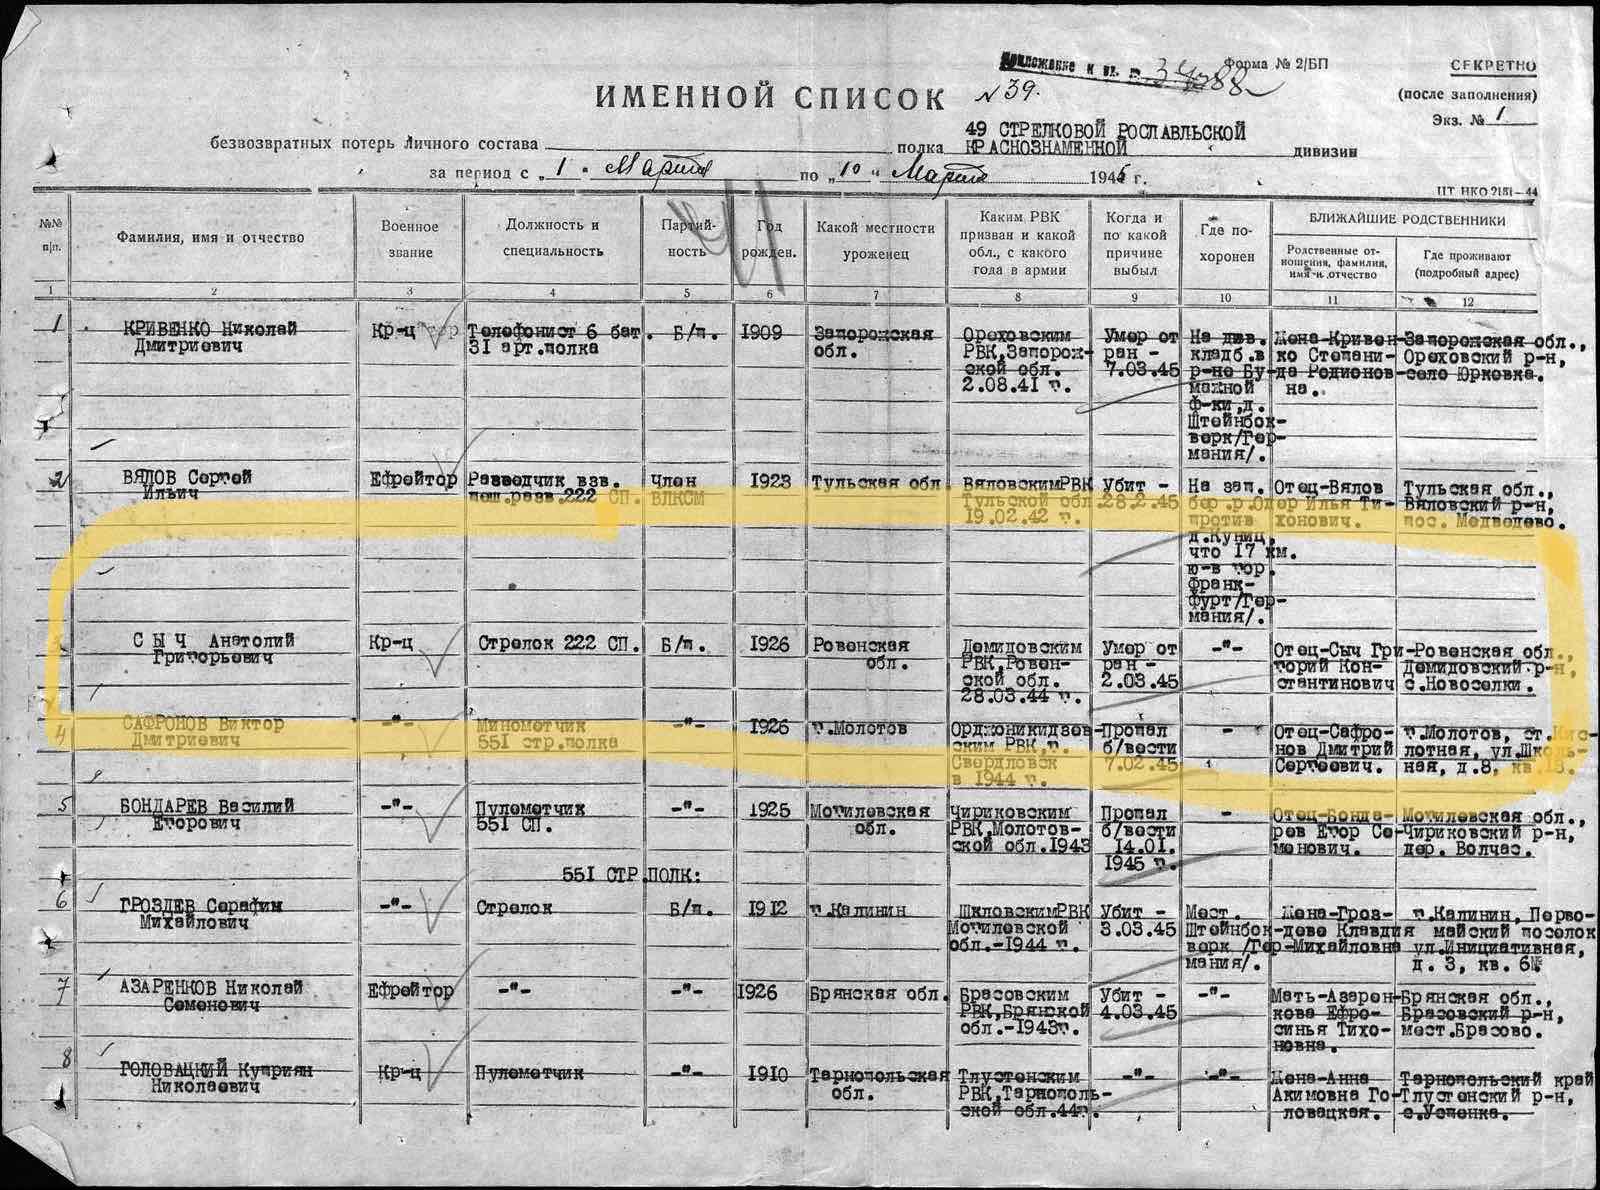 Приложение к вх. № 34788
Форма № 2/БП
СЕКРЕТНО
(после заполнения)
Экз. № 1
ИМЕННОЙ СПИСОК
№39.
безвозвратных потерь личного состава полка 49 СТРЕЛКОВОЙ РОСЛАВЛЬСКОЙ
КРАСНОЗНАМЕННОЙ дивизии
за период с „1" Марта по „10" Марта 1945 г.
ЦТ НКО 2151—44
№№ п/п.
Фамилия, имя и отчество
Военное звание
Должность и специальность
Партий- ность
Год рожден.
Какой местности уроженец
Каким РВК призван и какой обл., с какого года в армии
Когда и по какой причине выбыл
Где по- хоронен
БЛИЖАЙШИЕ РОДСТВЕННИКИ
Родственные от- ношения, фамилия, имя и отчество
Где проживают (подробный адрес)
1 2 3 4 5 6 7 8 9 10 11 12
1 КРИВЕНКО Николай Кр-ц Телефонист 6 бат. Б/п. 1909 Запорожская Ореховским Умер от На див. Жена-Кривен- Запорожская обл.,
Дмитриевич 31 арт.полка обл. РВК,Запорож- ран - кладб.в ко Степани- Ореховский р-н,
ской обл. 7.03.45 р-не Бу- да Родионов- село Юрковка.
2.08.41 г. мажной на.
ф-ки,д.
Штейнбок-
верк/Гер-
мания/.
2 ВЯЛОВ Сергей Ефрейтор Разведчик взв. Член 1923 Тульская обл ВяловскимРВК Убит - На зап. Отец-Вялов Тульская обл.,
Ильич пеш.разв.222 СП. ВЛКСМ Тульской обл. 28.2.45 бер.р.Одер Илья Ти- Вяловский р-н,
19.02.42 г. против хонович. пос. Медведево.
д.Куниц,
что 17 км.
ю-в гор.
Франк-
фурт/Гер-
мания/.
СЫЧ Анатолий Кр-ц Стрелок 222 СП. Б/п. 1926 Ровенская Демидовским Умер от -"- Отец-Сыч Гри- Ровенская обл.,
Григорьевич обл. РВК,Ровен- ран - горий Кон- Демидовский р-н,
ской обл. 2.03.45 стантинович с.Новоселки.
28.03.44 г.
4 САФРОНОВ Виктор -"- Минометчик -"- 1926 г.Молотов Орджоникидзев- Пропал - Отец-Сафро- г.Молотов, ст.Кис-
Дмитриевич 551 стр.полка ским РВК,г. б/вести нов Дмитрий лотная, ул.Школь-
Свердловск 7.02.45 Сергеевич. ная, д.8, кв.18.
в 1944 г.
5 БОНДАРЕВ Василий -"- Пулеметчик -"- 1925 Могилевская Чириковским Пропал - Отец-Бонда- Могилевская обл.,
Егорович 551 СП. обл. РВК,Молотов- б/вести рев Егор Се- Чириковский р-н,
ской обл.1943 14.01. менович. дер. Волчас.
1945 г.
551 СТР.ПОЛК:
6 ГРОЗДЕВ Серафим -"- Стрелок Б/п. 1912 г.Калинин ШкловскимРВК Убит - Мест. Жена-Гроз- г.Калинин, Перво-
Михайлович Могилевской 3.03.45 Штейнбок- дева Клавдия майский поселок
обл.-1944 г. верк /Гер- Михайловна ул.Инициативная,
мания/. д. 3, кв. 6.
7 АЗАРЕНКОВ Николай Ефрейтор -"- -"- 1926 Брянская обл. Брасовским Убит - -"- Мать-Азарен- Брянская обл.,
Семенович РВК,Брянской 4.03.45 кова Ефро- Брасовский р-н,
обл.-1943г. синья Тихо- мест.Брасово.
новна.
8 ГОЛОВАЦКИЙ Куприян Кр-ц Пулеметчик -"- 1910 Тарнопольская Тлустенским -"- -"- Жена-Анна Тарнопольский край
Николаевич обл. РВК,Тарнополь- Акимовна Го- Тлустенский р-н,
ской обл.44г. ловацкая. с.Успенка.